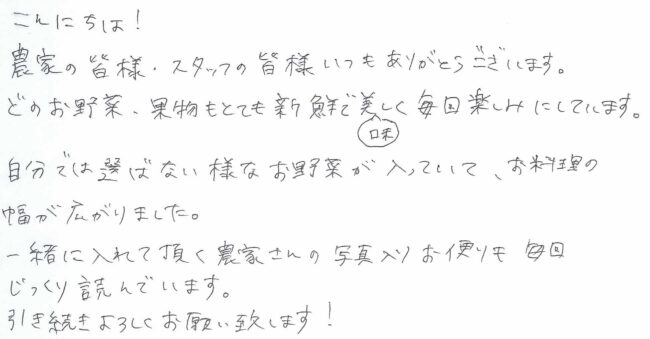 こんにちは！
農家の皆様・スタッフの皆様いつもありがとうございます。
どのお野菜、果物もとても新鮮で美味しく毎回楽しみにしています。
自分では選ばない様なお野菜が入っていて、お料理の
幅が広がりました。
一緒に入れて頂く農家さんの写真入りお便りも毎回
じっくり読んでいます。
引き続きよろしくお願い致します！